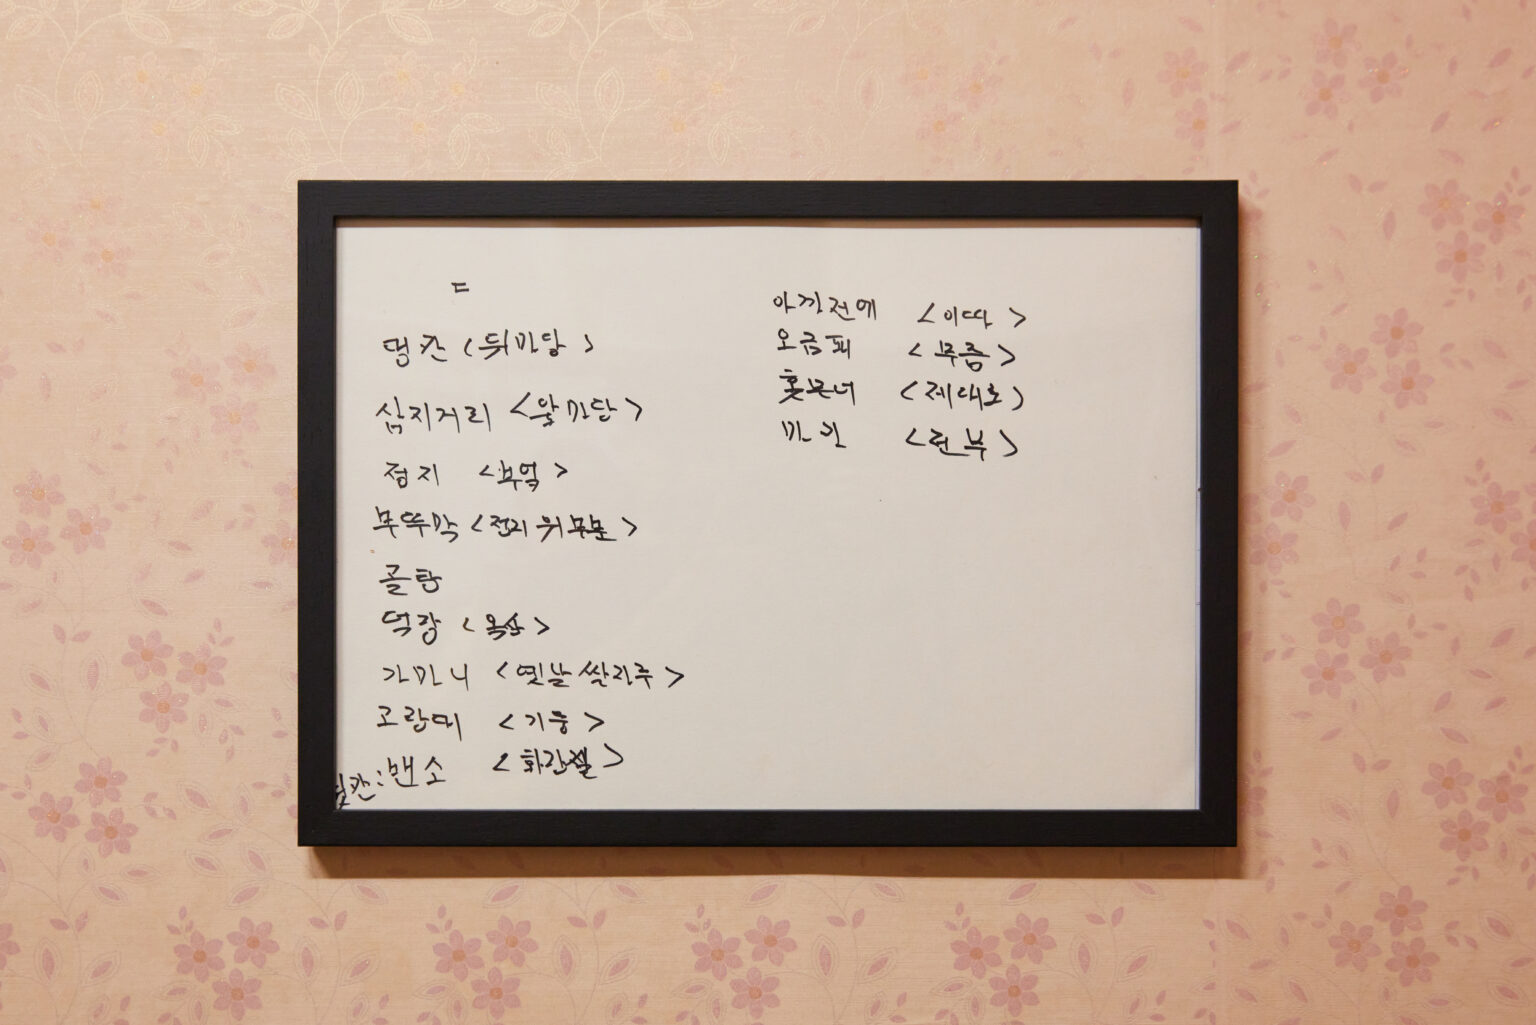 ㄷ
뎡칸 <뒤마당>
삼지거리 <앞마당>
정지 <부엌>
부뚜막 <정지 위부분>
골탕
덕장 <옥상>
가마니 <옛날 쌀자루>
고랑대 <기둥>
칸: 밴소 <화장실>
아까전에 <이따>
오금패 <무릎>
<제대로>
마카 <전부>